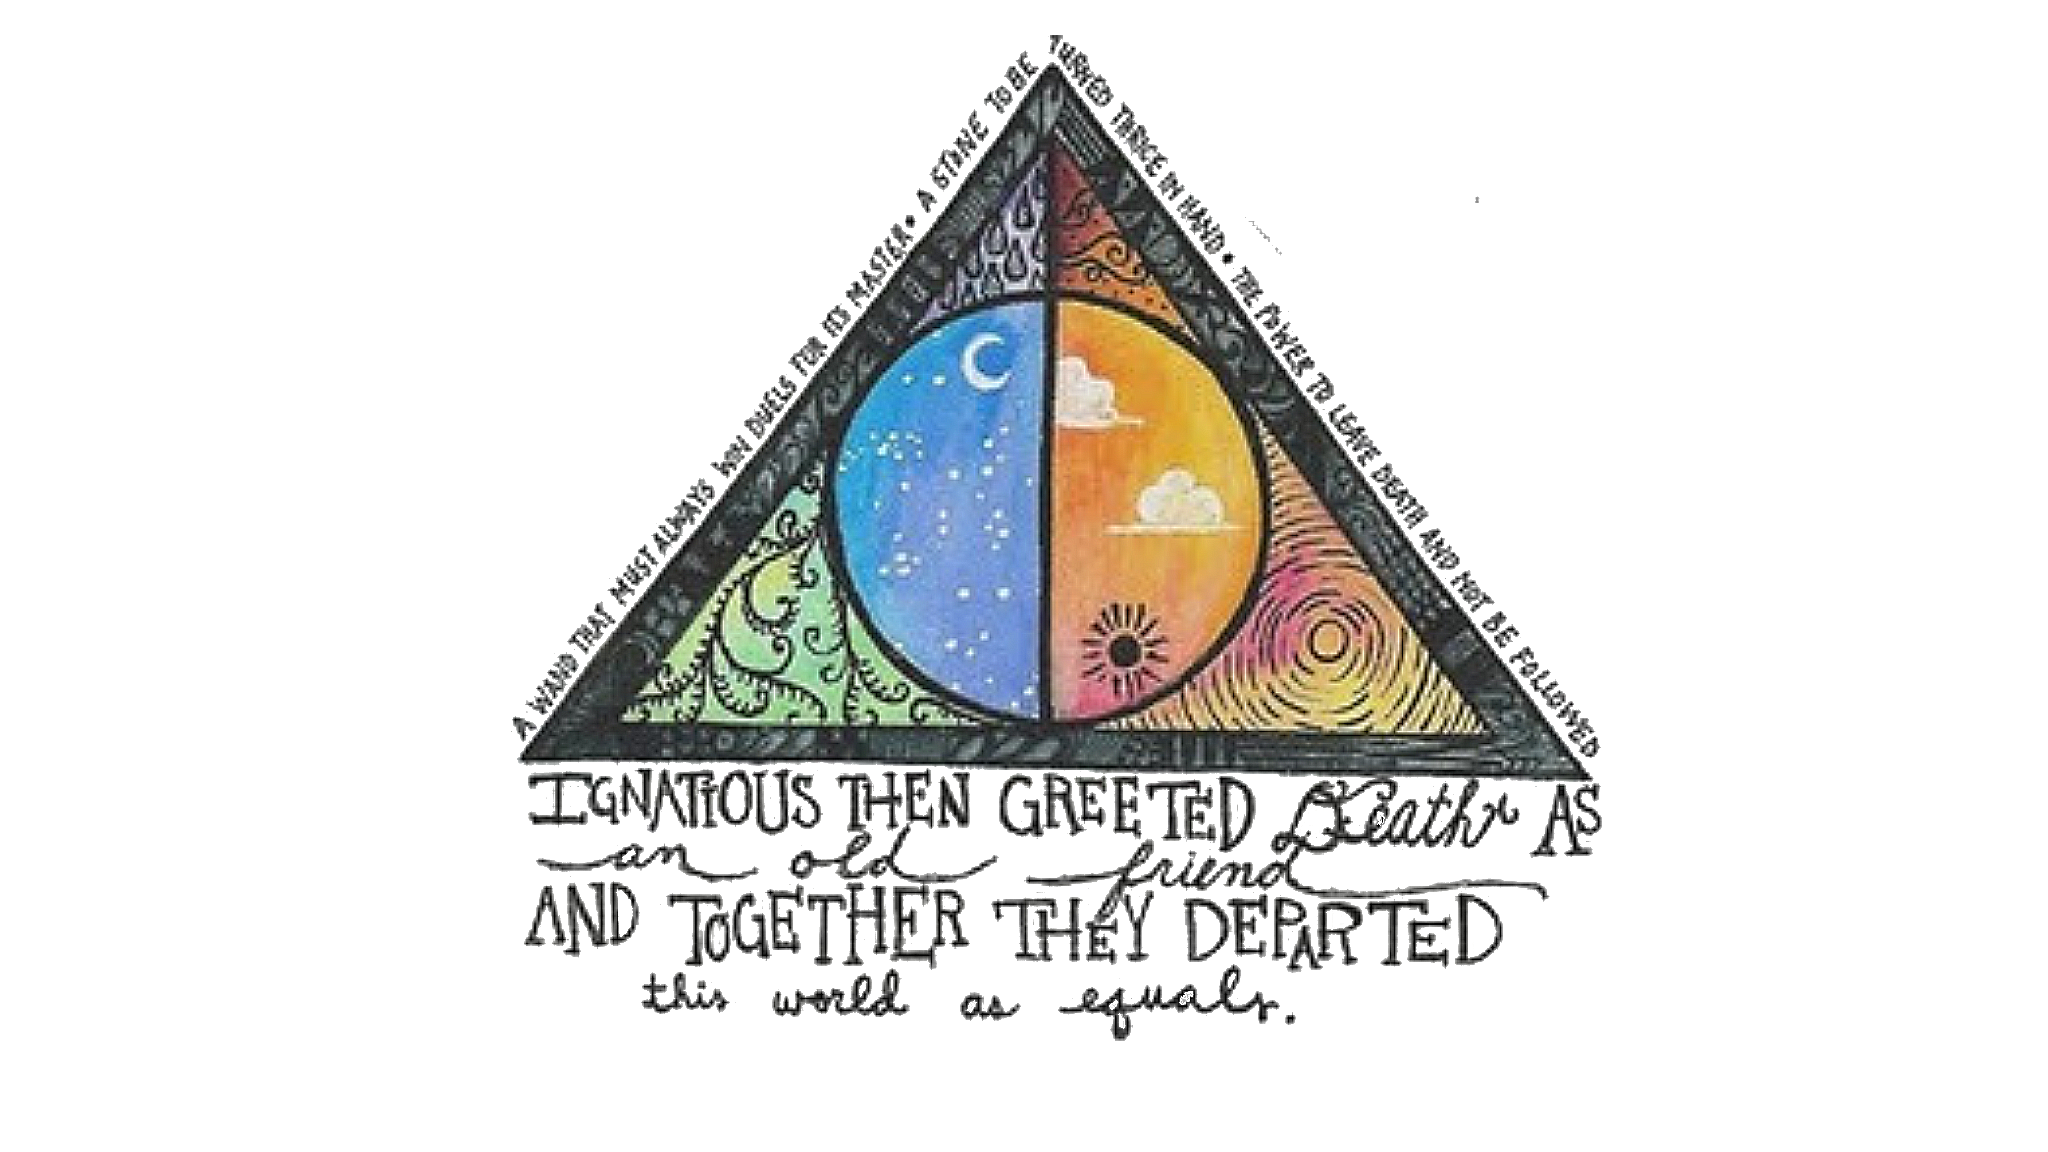 A WAND THAT MUST ALWAYS WIN DUELS FOR ITS MASTER • A STONE TO BE
TURNED THRICE IN HAND • THE POWER TO LEAVE DEATH AND NOT BE FOLLOWED
IGNATIOUS THEN GREETED Death AS
an old friend
AND TOGETHER THEY DEPARTED
this world as equals.